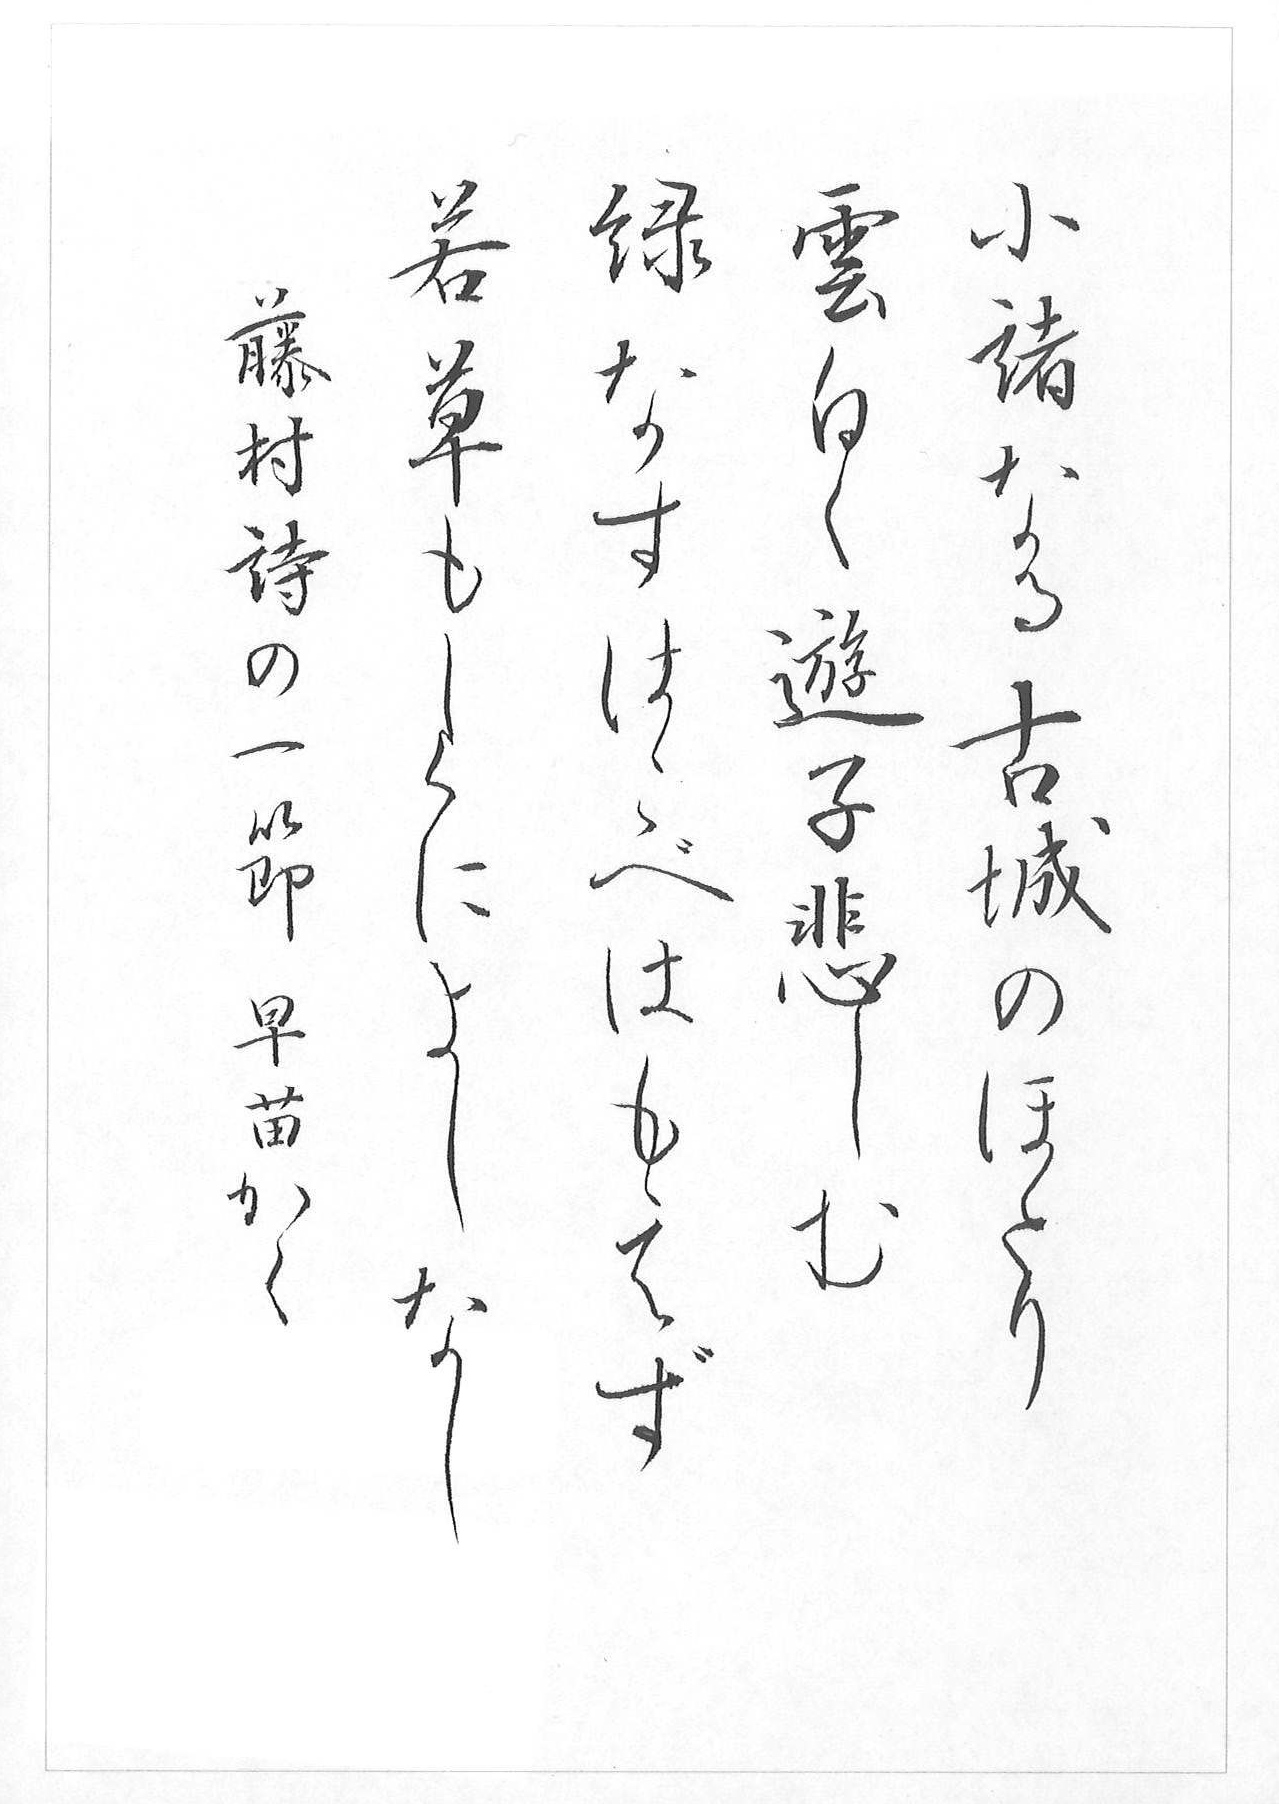 小諸なる古城のほとり
雲白く遊子悲しむ
緑なすはこべはもえず
若草もしくによしなし
藤村詩の一節 早苗かく